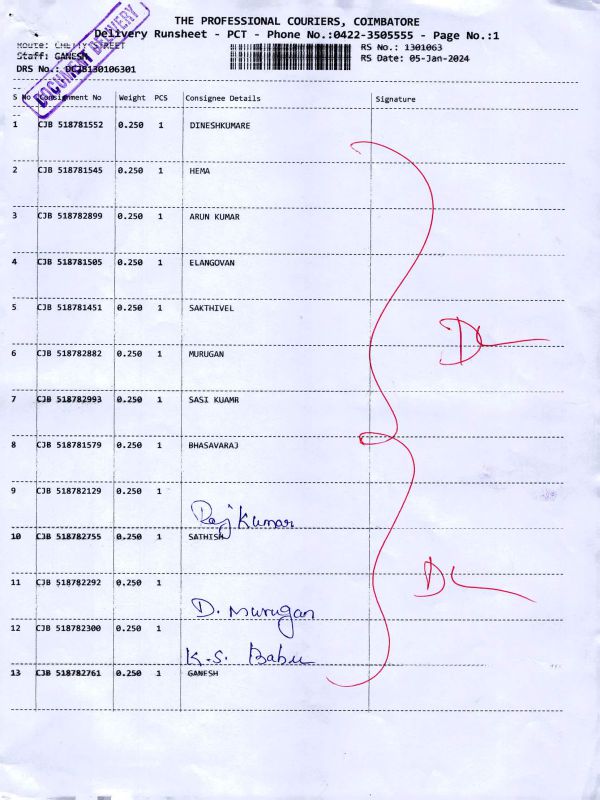 THE PROFESSIONAL COURIERS, COIMBATORE
Delivery Runsheet - PCT - Phone No.:0422-3505555 - Page No.:1
Route: CHETTY STREET
RS No.: 1301063
Staff: GANESH
RS Date: 05-Jan-2024
DRS No.: DCJB130106301
DOCUMENT DELIVERY
S No Consignment No Weight PCS Consignee Details Signature
1 CJB 518781552 0.250 1 DINESHKUMARE
2 CJB 518781545 0.250 1 HEMA
3 CJB 518782899 0.250 1 ARUN KUMAR
4 CJB 518781505 0.250 1 ELANGOVAN
5 CJB 518781451 0.250 1 SAKTHIVEL
6 CJB 518782882 0.250 1 MURUGAN
7 CJB 518782993 0.250 1 SASI KUAMR
8 CJB 518781579 0.250 1 BHASAVARAJ
9 CJB 518782129 0.250 1
Raj Kumar
10 CJB 518782755 0.250 1 SATHISH
11 CJB 518782292 0.250 1
D. Murugan
12 CJB 518782300 0.250 1
K.S. Babu
13 CJB 518782761 0.250 1 GANESH